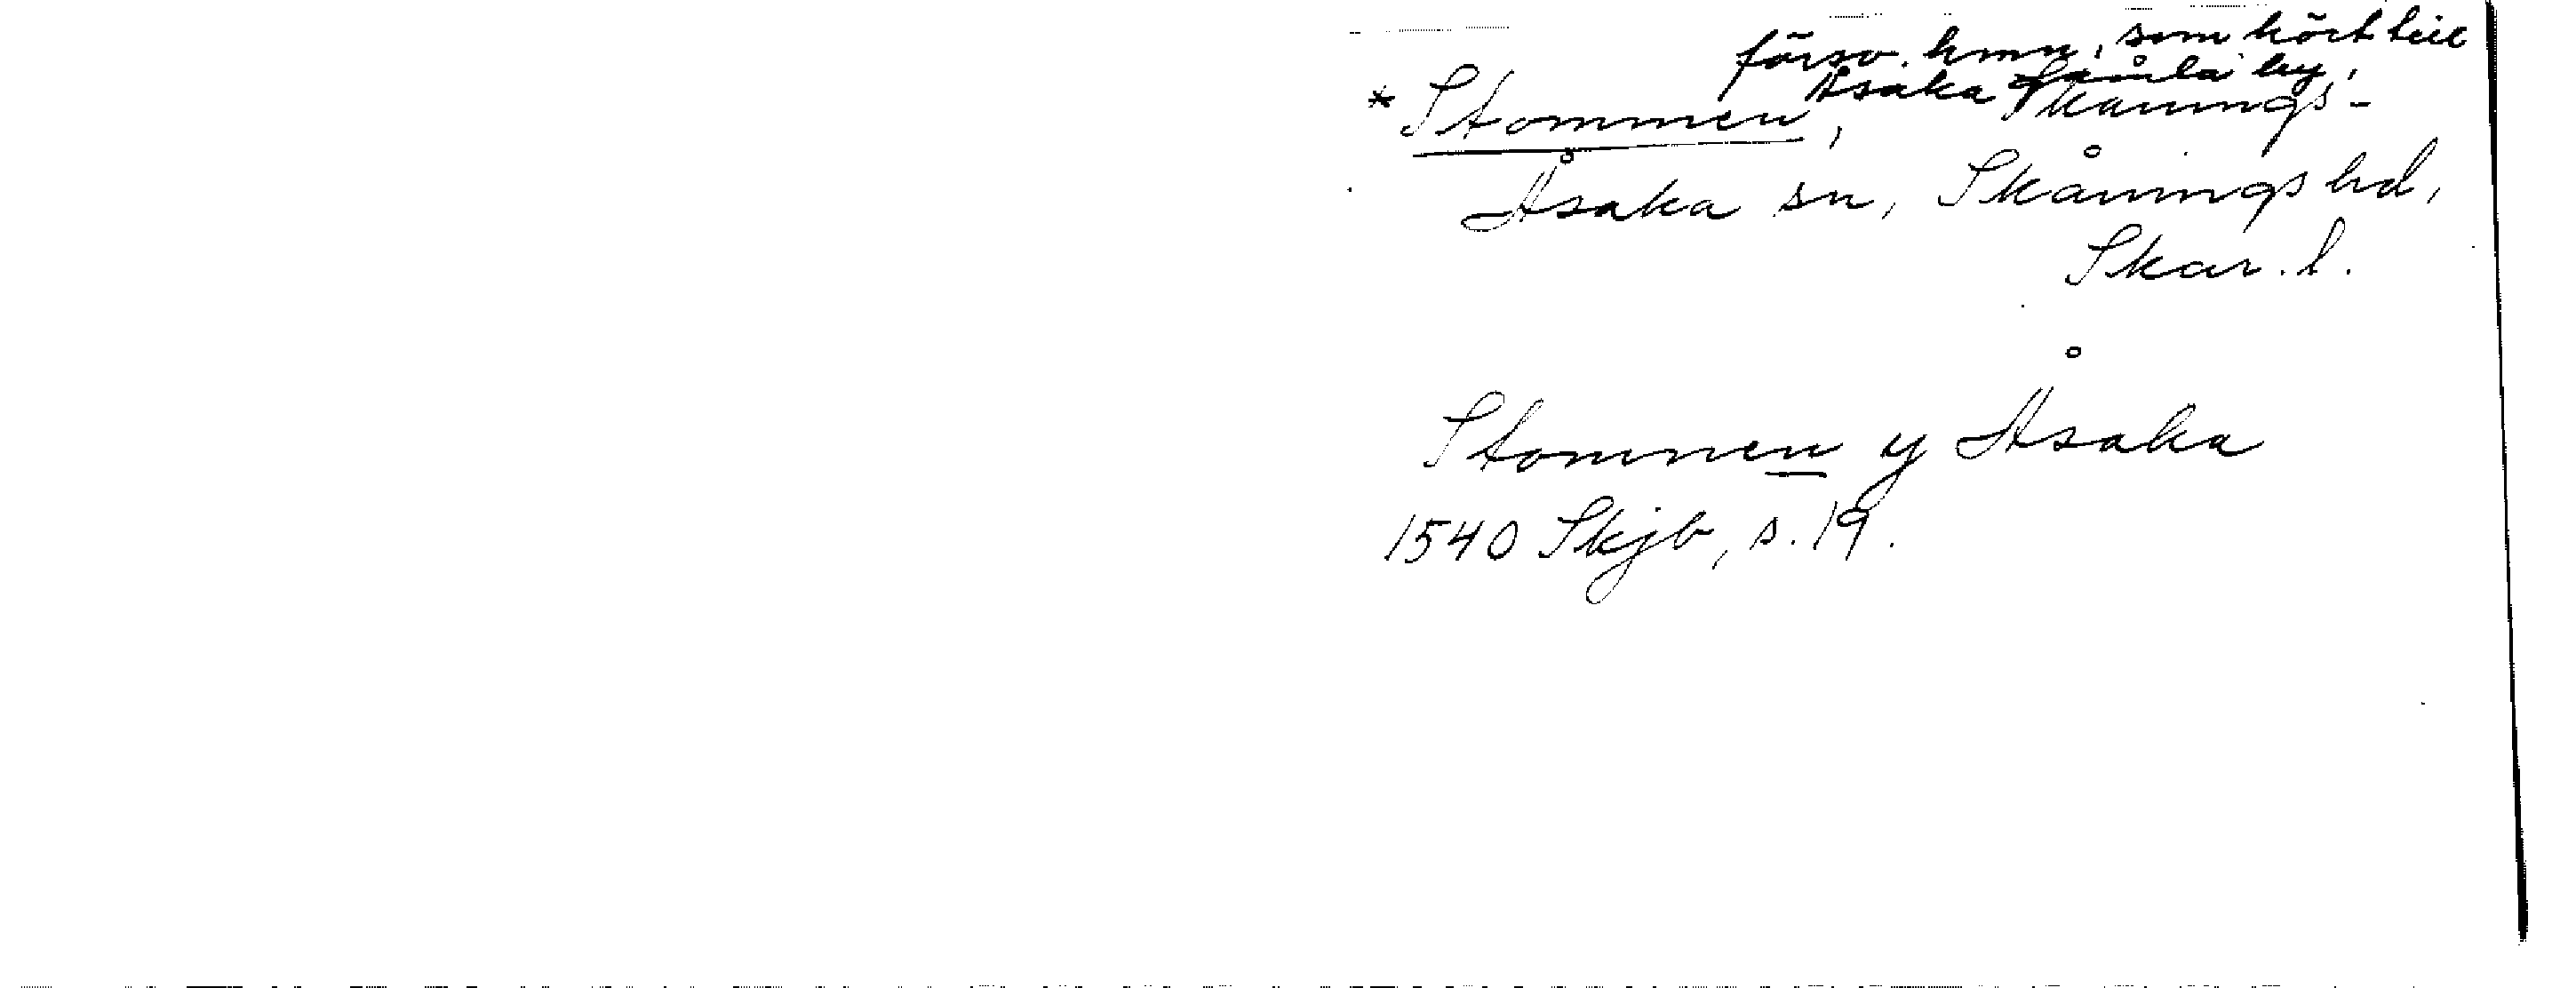 försv. hmn, som hört till
Åsaka gamla by,
* Stommen, Skånings-
Åsaka sn, Skånings hd,
Skar. l.
Stommen y Åsaka
1540 Skjb, s. 19.